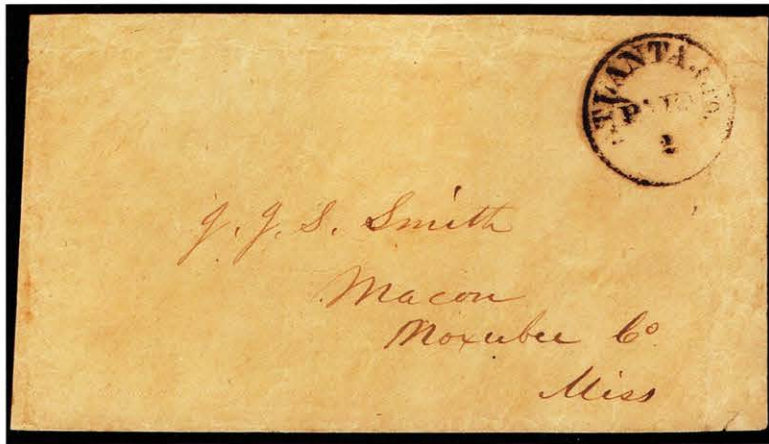 ATLANTA, GEO.
PAID
2
J. J. S. Smith
Macon
Noxubee Co
Miss